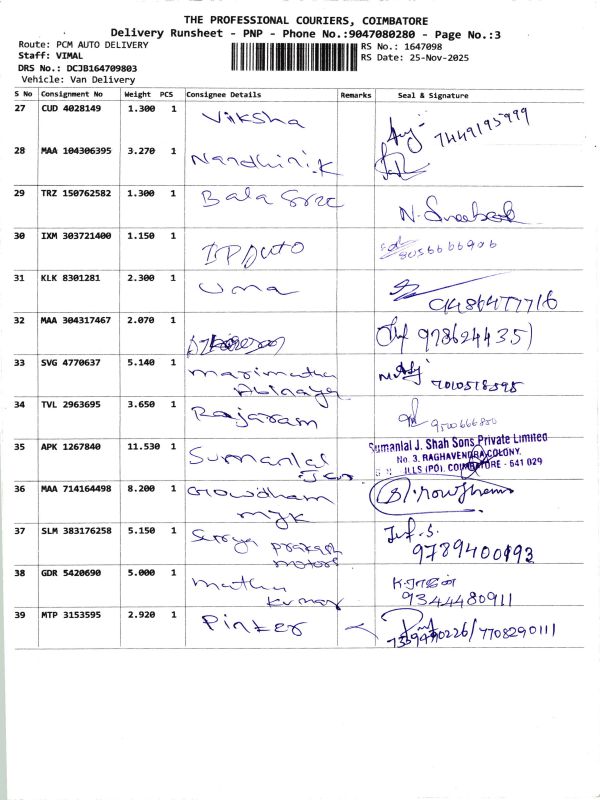 THE PROFESSIONAL COURIERS, COIMBATORE
Delivery Runsheet - PNP - Phone No.:9047080280 - Page No.:3
Route: PCM AUTO DELIVERY
RS No.: 1647098
Staff: VIMAL
RS Date: 25-Nov-2025
DRS No.: DCJB164709803
Vehicle: Van Delivery
S No Consignment No Weight PCS Consignee Details Remarks Seal & Signature
27 CUD 4028149 1.300 1 Viksha 7449195999
28 MAA 104306395 3.270 1 Nandhini.K
29 TRZ 150762582 1.300 1 Bala
30 IXM 303721400 1.150 1 IP Auto 8056666906
31 KLK 8301281 2.300 1 Uma
32 MAA 304317467 2.070 1
33 SVG 4770637 5.140 1 Marimuthu
Abinaya
34 TVL 2963695 3.650 1 Rajaram
35 APK 1267840 11.530 1 Sumanlal
Sumanlal J. Shah Sons Private Limited
No. 3, RAGHAVENDRA COLONY,
ILLS (PO), COIMBATORE - 641 029
36 MAA 714164498 8.200 1 Gowdham
MJK
37 SLM 383176258 5.150 1 Surya prakash
motors
9789400193
38 GDR 5420690 5.000 1 Muthu
Kumar
9344480911
39 MTP 3153595 2.920 1 Pinker
7708290111